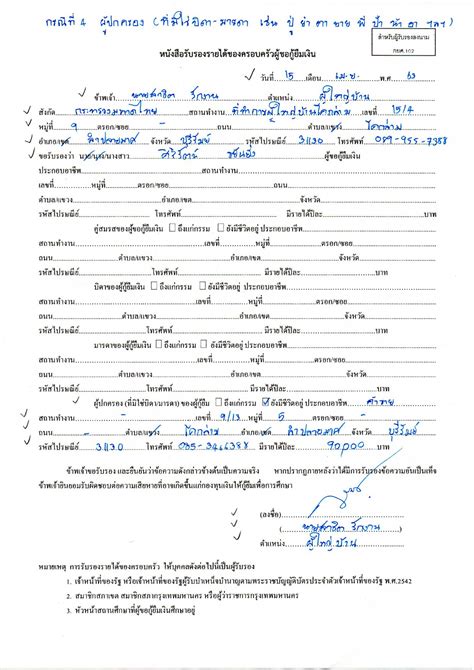 กรณีที่ 4 ผู้ปกครอง (ที่มิใช่บิดา-มารดา เช่น ปู่ ย่า ตา ยาย พี่ ป้า น้า อา ฯลฯ)
สำหรับผู้รับรองลงนาม
กยศ.102
หนังสือรับรองรายได้ของครอบครัวผู้ขอกู้ยืมเงิน
วันที่ 15 เดือน เม.ย. พ.ศ. 63
ข้าพเจ้า นายสาธิต รักงาน ตำแหน่ง ผู้ใหญ่บ้าน
สังกัด กระทรวงมหาดไทย สถานที่ทำงาน ที่ทำการผู้ใหญ่บ้านโคกล่าม เลขที่ 15/4
หมู่ที่ 9 ตรอก/ซอย - ถนน - ตำบล/แขวง โคกล่าม
อำเภอ/เขต ลำปลายมาศ จังหวัด บุรีรัมย์ รหัสไปรษณีย์ 31130 โทรศัพท์ 089-955-7358
ขอรับรองว่า นาย/นาง/นางสาว ศิริรัตน์ ผู้ขอกู้ยืมเงิน
ประกอบอาชีพ สถานที่ทำงาน
เลขที่ หมู่ที่ ตรอก/ซอย ถนน
ตำบล/แขวง อำเภอ/เขต จังหวัด
รหัสไปรษณีย์ โทรศัพท์ มีรายได้ปีละ บาท
คู่สมรสของผู้ขอกู้ยืมเงิน ถึงแก่กรรม ยังมีชีวิตอยู่ ประกอบอาชีพ
สถานที่ทำงาน เลขที่ หมู่ที่ ตรอก/ซอย
ถนน ตำบล/แขวง อำเภอ/เขต จังหวัด
รหัสไปรษณีย์ โทรศัพท์ มีรายได้ปีละ บาท
บิดาของผู้กู้ยืมเงิน ถึงแก่กรรม ยังมีชีวิตอยู่ ประกอบอาชีพ
สถานที่ทำงาน เลขที่ หมู่ที่ ตรอก/ซอย
ถนน ตำบล/แขวง อำเภอ/เขต จังหวัด
รหัสไปรษณีย์ โทรศัพท์ มีรายได้ปีละ บาท
มารดาของผู้กู้ยืมเงิน ถึงแก่กรรม ยังมีชีวิตอยู่ ประกอบอาชีพ
สถานที่ทำงาน เลขที่ หมู่ที่ ตรอก/ซอย
ถนน ตำบล/แขวง อำเภอ/เขต จังหวัด
รหัสไปรษณีย์ โทรศัพท์ มีรายได้ปีละ บาท
ผู้ปกครอง (ที่มิใช่บิดา/มารดา) ของผู้กู้ยืม ถึงแก่กรรม ยังมีชีวิตอยู่ ประกอบอาชีพ ค้าขาย
สถานที่ทำงาน - เลขที่ 9/13 หมู่ที่ 5 ตรอก/ซอย -
ถนน - ตำบล/แขวง โคกล่าม อำเภอ/เขต ลำปลายมาศ จังหวัด บุรีรัมย์
รหัสไปรษณีย์ 31130 โทรศัพท์ 085-3466388 มีรายได้ปีละ 90,000 บาท
ข้าพเจ้าขอรับรอง และยืนยันว่าข้อความดังกล่าวข้างต้นเป็นความจริง หากปรากฏภายหลังว่าได้มีการรับรองข้อความอันเป็นเท็จ
ข้าพเจ้ายินยอมรับผิดชอบต่อความเสียหายที่อาจเกิดขึ้นแก่กองทุนเงินให้กู้ยืมเพื่อการศึกษา
(ลงชื่อ)
(นายสาธิต รักงาน)
ตำแหน่ง ผู้ใหญ่บ้าน
หมายเหตุ การรับรองรายได้ของครอบครัว ให้บุคคลดังต่อไปนี้เป็นผู้รับรอง
1. เจ้าหน้าที่ของรัฐ หรือเจ้าหน้าที่ของรัฐผู้รับบำเหน็จบำนาญตามพระราชบัญญัติบัตรประจำตัวเจ้าหน้าที่ของรัฐ พ.ศ.2542
2. สมาชิกสภาเขต สมาชิกสภากรุงเทพมหานคร หรือผู้ว่าราชการกรุงเทพมหานคร
3. หัวหน้าสถานศึกษาที่ผู้ขอกู้ยืมเงินศึกษาอยู่